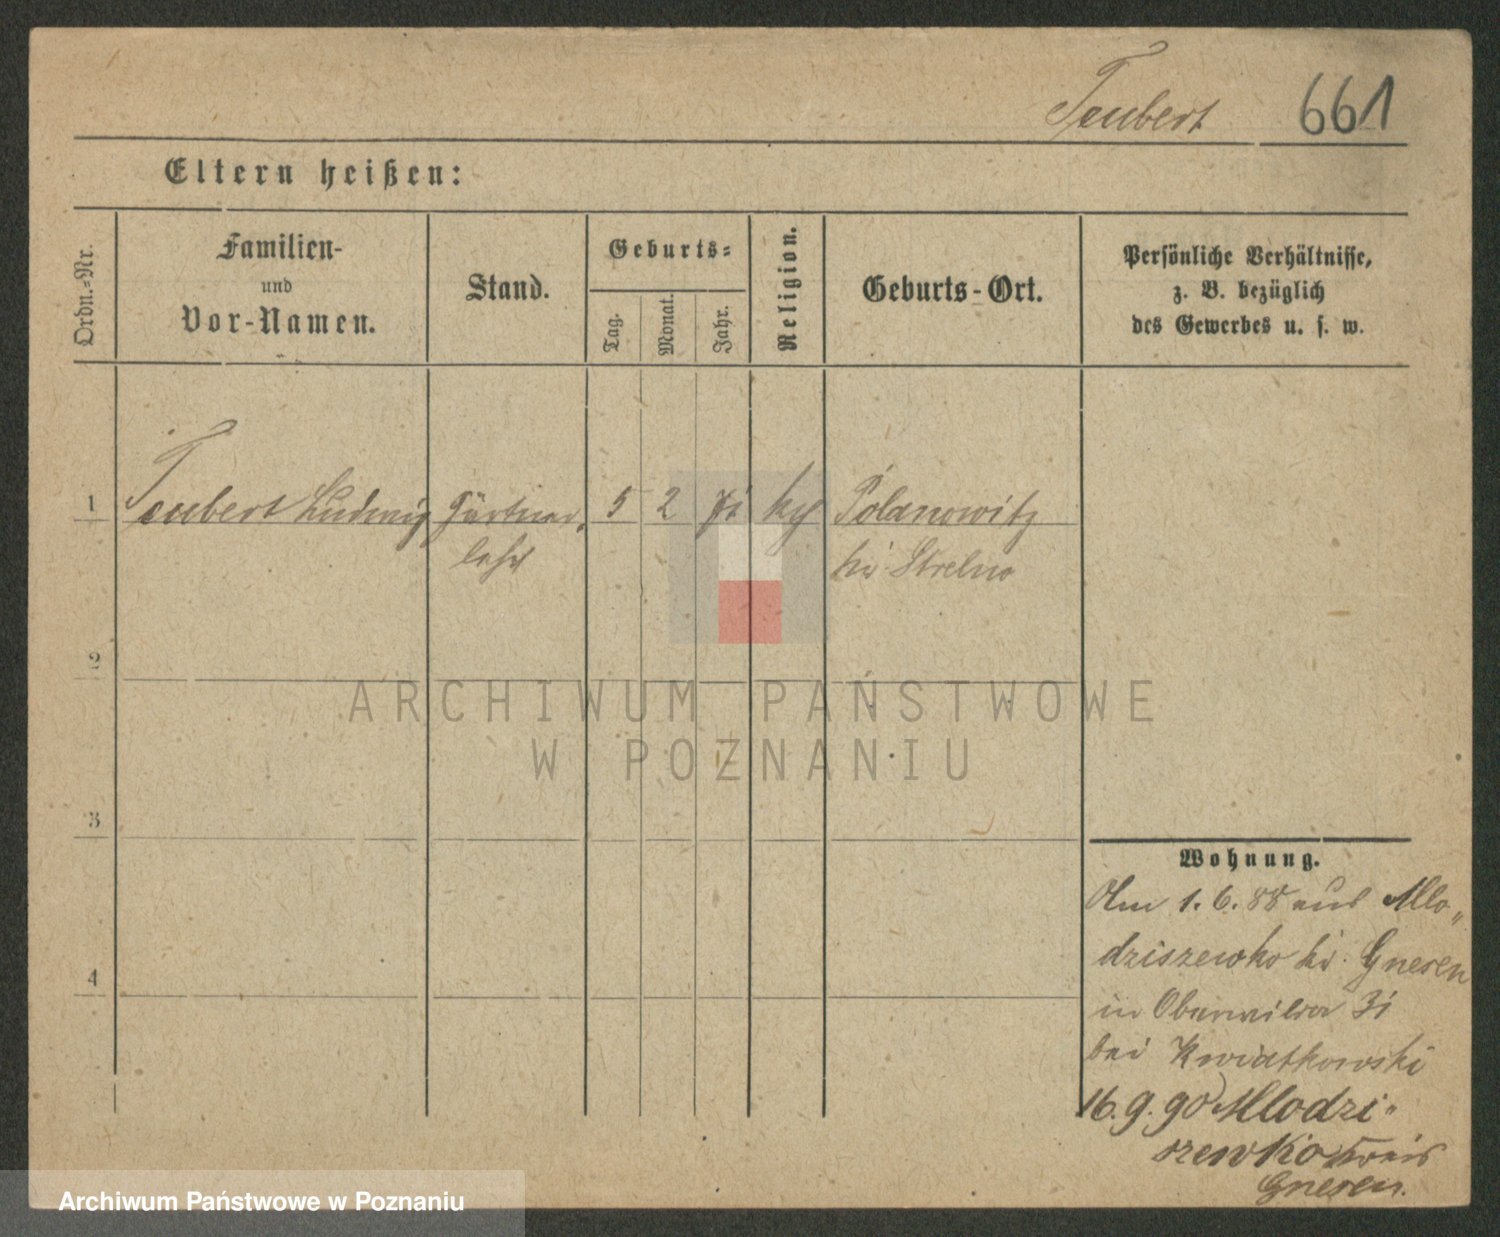 Teubert 661
Eltern heißen:
Ordn.-Nr.
Familien-
und
Vor-Namen.
Stand.
Geburts-
Tag.
Monat.
Jahr.
Religion.
Geburts-Ort.
Persönliche Verhältnisse,
z. B. bezüglich
des Gewerbes u. s. w.
1 Teubert Ludwig Gärtner- 5 2 71 Polanowitz
lehrl
kr. Strelno
2
3
4
Wohnung.
Am 1. 6. 88 aus Mlo-
dziszewko kr. Gnesen
in Oberwilda 31
bei Kwiatkowski
16. 9. 90 Mlodzi-
szewko Kreis
Gnesen.
ARCHIWUM PAŃSTWOWE
W POZNANIU
Archiwum Państwowe w Poznaniu